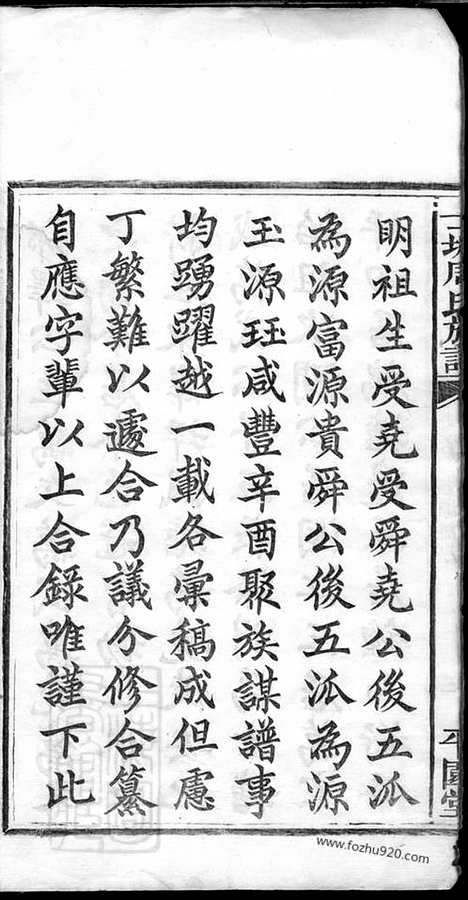 明祖生受堯受舜堯公後五派
為源富源貴舜公後五派為源
玉源珏咸豐辛酉聚族謀譜事
均踴躍越一載各彙稿成但慮
丁繁難以遽合乃議分修合纂
自應字輩以上合錄唯謹下此
周氏族譜
www.fozhu920.com